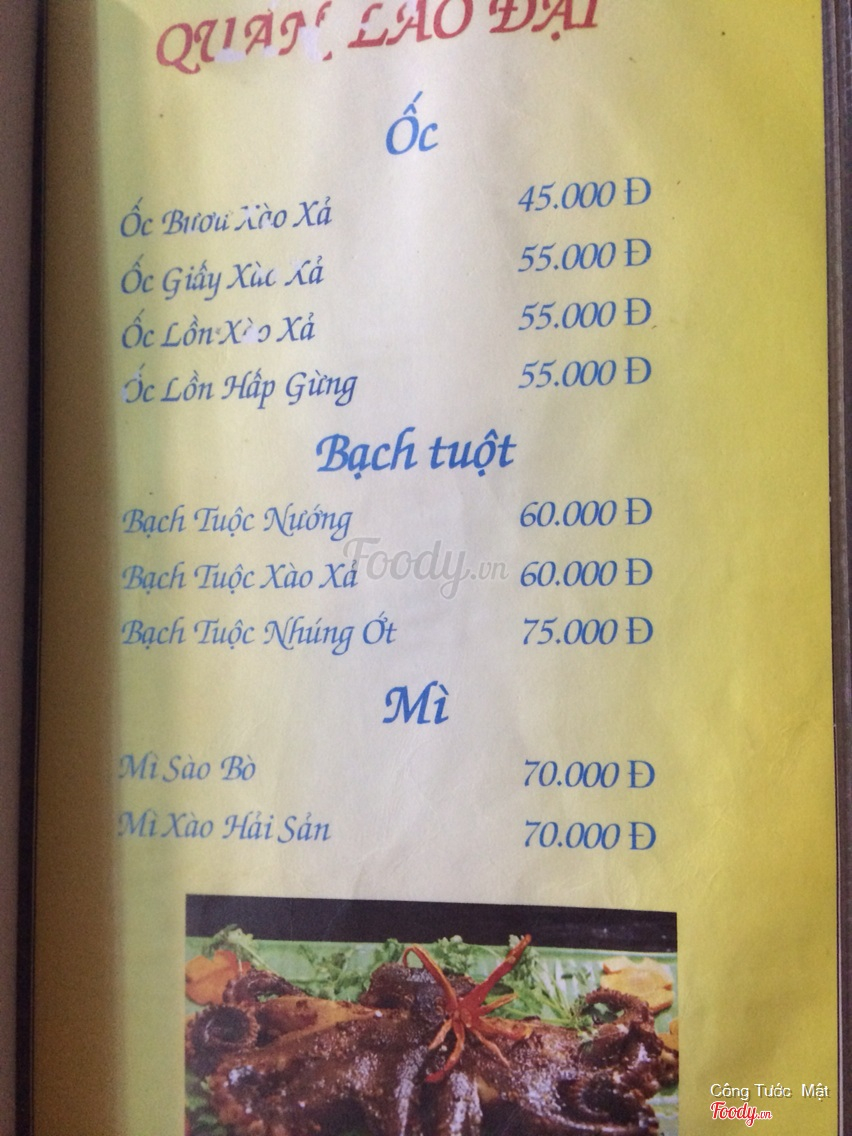 QUÁN LÃO ĐẠI
Ốc
Ốc Bươu Xào Xả 45.000 Đ
Ốc Giấy Xào Xả 55.000 Đ
Ốc Lồn Xào Xả 55.000 Đ
Ốc Lồn Hấp Gừng 55.000 Đ
Bạch tuột
Bạch Tuộc Nướng 60.000 Đ
Bạch Tuộc Xào Xả 60.000 Đ
Bạch Tuộc Nhúng Ớt 75.000 Đ
Foody.vn
Mì
Mì Sào Bò 70.000 Đ
Mì Xào Hải Sản 70.000 Đ
Công Tước Mật
Foody.vn